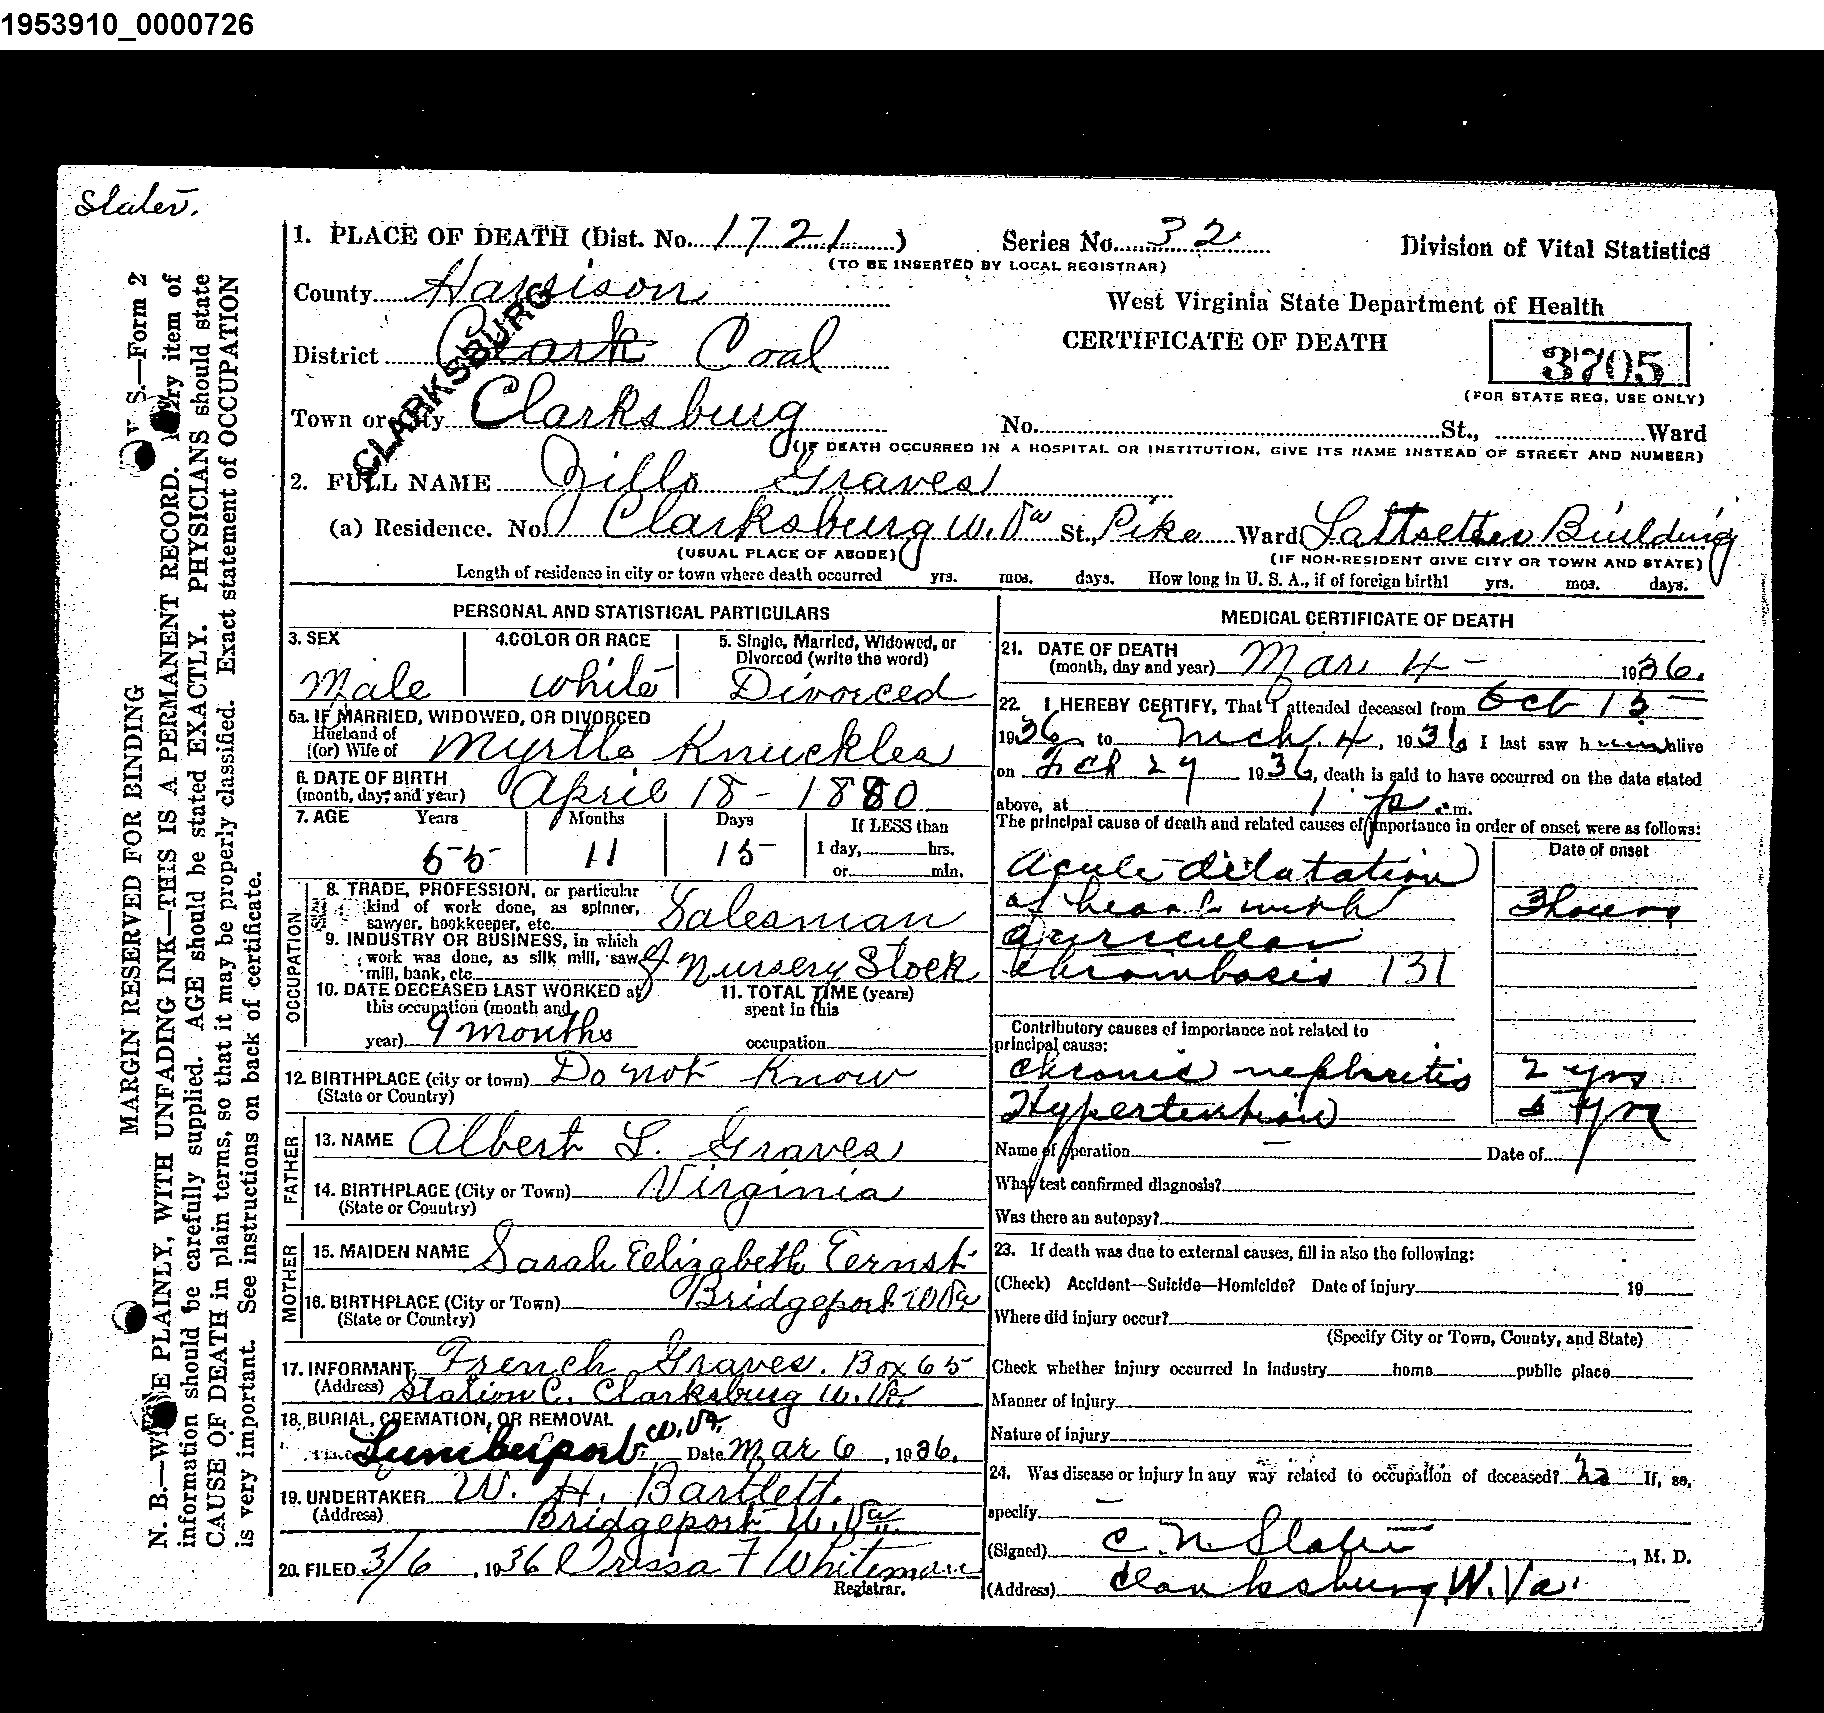 1953910_0000726
Slater.
1. PLACE OF DEATH (Dist. No. 1721 )
Series No. 32
Division of Vital Statistics
(TO BE INSERTED BY LOCAL REGISTRAR)
County Harrison
West Virginia State Department of Health
CERTIFICATE OF DEATH
3705
(FOR STATE REG. USE ONLY)
District Clark Coal
CLARKSBURG
Town or City Clarksburg
No. St., Ward
(IF DEATH OCCURRED IN A HOSPITAL OR INSTITUTION, GIVE ITS NAME INSTEAD OF STREET AND NUMBER)
2. FULL NAME Zillo Graves
(a) Residence. No. Clarksburg W. Va St., Pike Ward Building
(USUAL PLACE OF ABODE)
(IF NON-RESIDENT GIVE CITY OR TOWN AND STATE)
Length of residence in city or town where death occurred yrs. mos. days. How long in U. S. A., if of foreign birth? yrs. mos. days.
PERSONAL AND STATISTICAL PARTICULARS
3. SEX
Male
4. COLOR OR RACE
white
5. Single, Married, Widowed, or
Divorced (write the word)
Divorced
5a. IF MARRIED, WIDOWED, OR DIVORCED
Husband of
(or) Wife of Myrtle Knuckles
6. DATE OF BIRTH
(month, day, and year) April 18 - 1880
7. AGE Years Months Days If LESS than
55 11 15 1 day, hrs.
or min.
OCCUPATION
8. TRADE, PROFESSION, or particular
kind of work done, as spinner,
sawyer, bookkeeper, etc. Salesman
9. INDUSTRY OR BUSINESS, in which
work was done, as silk mill, saw
mill, bank, etc. of Nursery Stock
10. DATE DECEASED LAST WORKED at
this occupation (month and
year) 9 months
11. TOTAL TIME (years)
spent in this
occupation
12. BIRTHPLACE (city or town) Do not Know
(State or Country)
FATHER
13. NAME Albert L. Graves
14. BIRTHPLACE (City or Town) Virginia
(State or Country)
MOTHER
15. MAIDEN NAME Sarah Eelizabeth Eernst
16. BIRTHPLACE (City or Town) Bridgeport W Va
(State or Country)
17. INFORMANT French Graves. Box 65
(Address) Station C. Clarksburg W. Va.
18. BURIAL, CREMATION, OR REMOVAL
Place Lumberport W. Va. Date Mar 6, 1936.
19. UNDERTAKER W. H. Bartlett.
(Address) Bridgeport W. Va.
20. FILED 3/6, 1936 Orissa F Whiteman
Registrar.
MEDICAL CERTIFICATE OF DEATH
21. DATE OF DEATH
(month, day and year) Mar 4 - 1936.
22. I HEREBY CERTIFY, That I attended deceased from Oct 15
1936 to Mch. 4, 1936 I last saw him alive
on Feb 29 1936, death is said to have occurred on the date stated
above, at 1 p. m.
The principal cause of death and related causes of importance in order of onset were as follows:
Date of onset
Acute dilatation
of heart with 3 hours
auricular
thrombosis 131
Contributory causes of importance not related to
principal cause:
Chronic nephritis 2 yrs
Hypertension yrs
Name of operation — Date of
What test confirmed diagnosis?
Was there an autopsy?
23. If death was due to external causes, fill in also the following:
(Check) Accident—Suicide—Homicide? Date of injury 19
Where did injury occur?
(Specify City or Town, County, and State)
Check whether injury occurred in industry home public place
Manner of injury
Nature of injury
24. Was disease or injury in any way related to occupation of deceased? no If, so,
specify —
(Signed) C. N. Slater, M. D.
(Address) Clarksburg W. Va.
V. S.—Form 2
MARGIN RESERVED FOR BINDING
N. B.—WRITE PLAINLY, WITH UNFADING INK—THIS IS A PERMANENT RECORD. Every item of
information should be carefully supplied. AGE should be stated EXACTLY. PHYSICIANS should state
CAUSE OF DEATH in plain terms, so that it may be properly classified. Exact statement of OCCUPATION
is very important. See instructions on back of certificate.